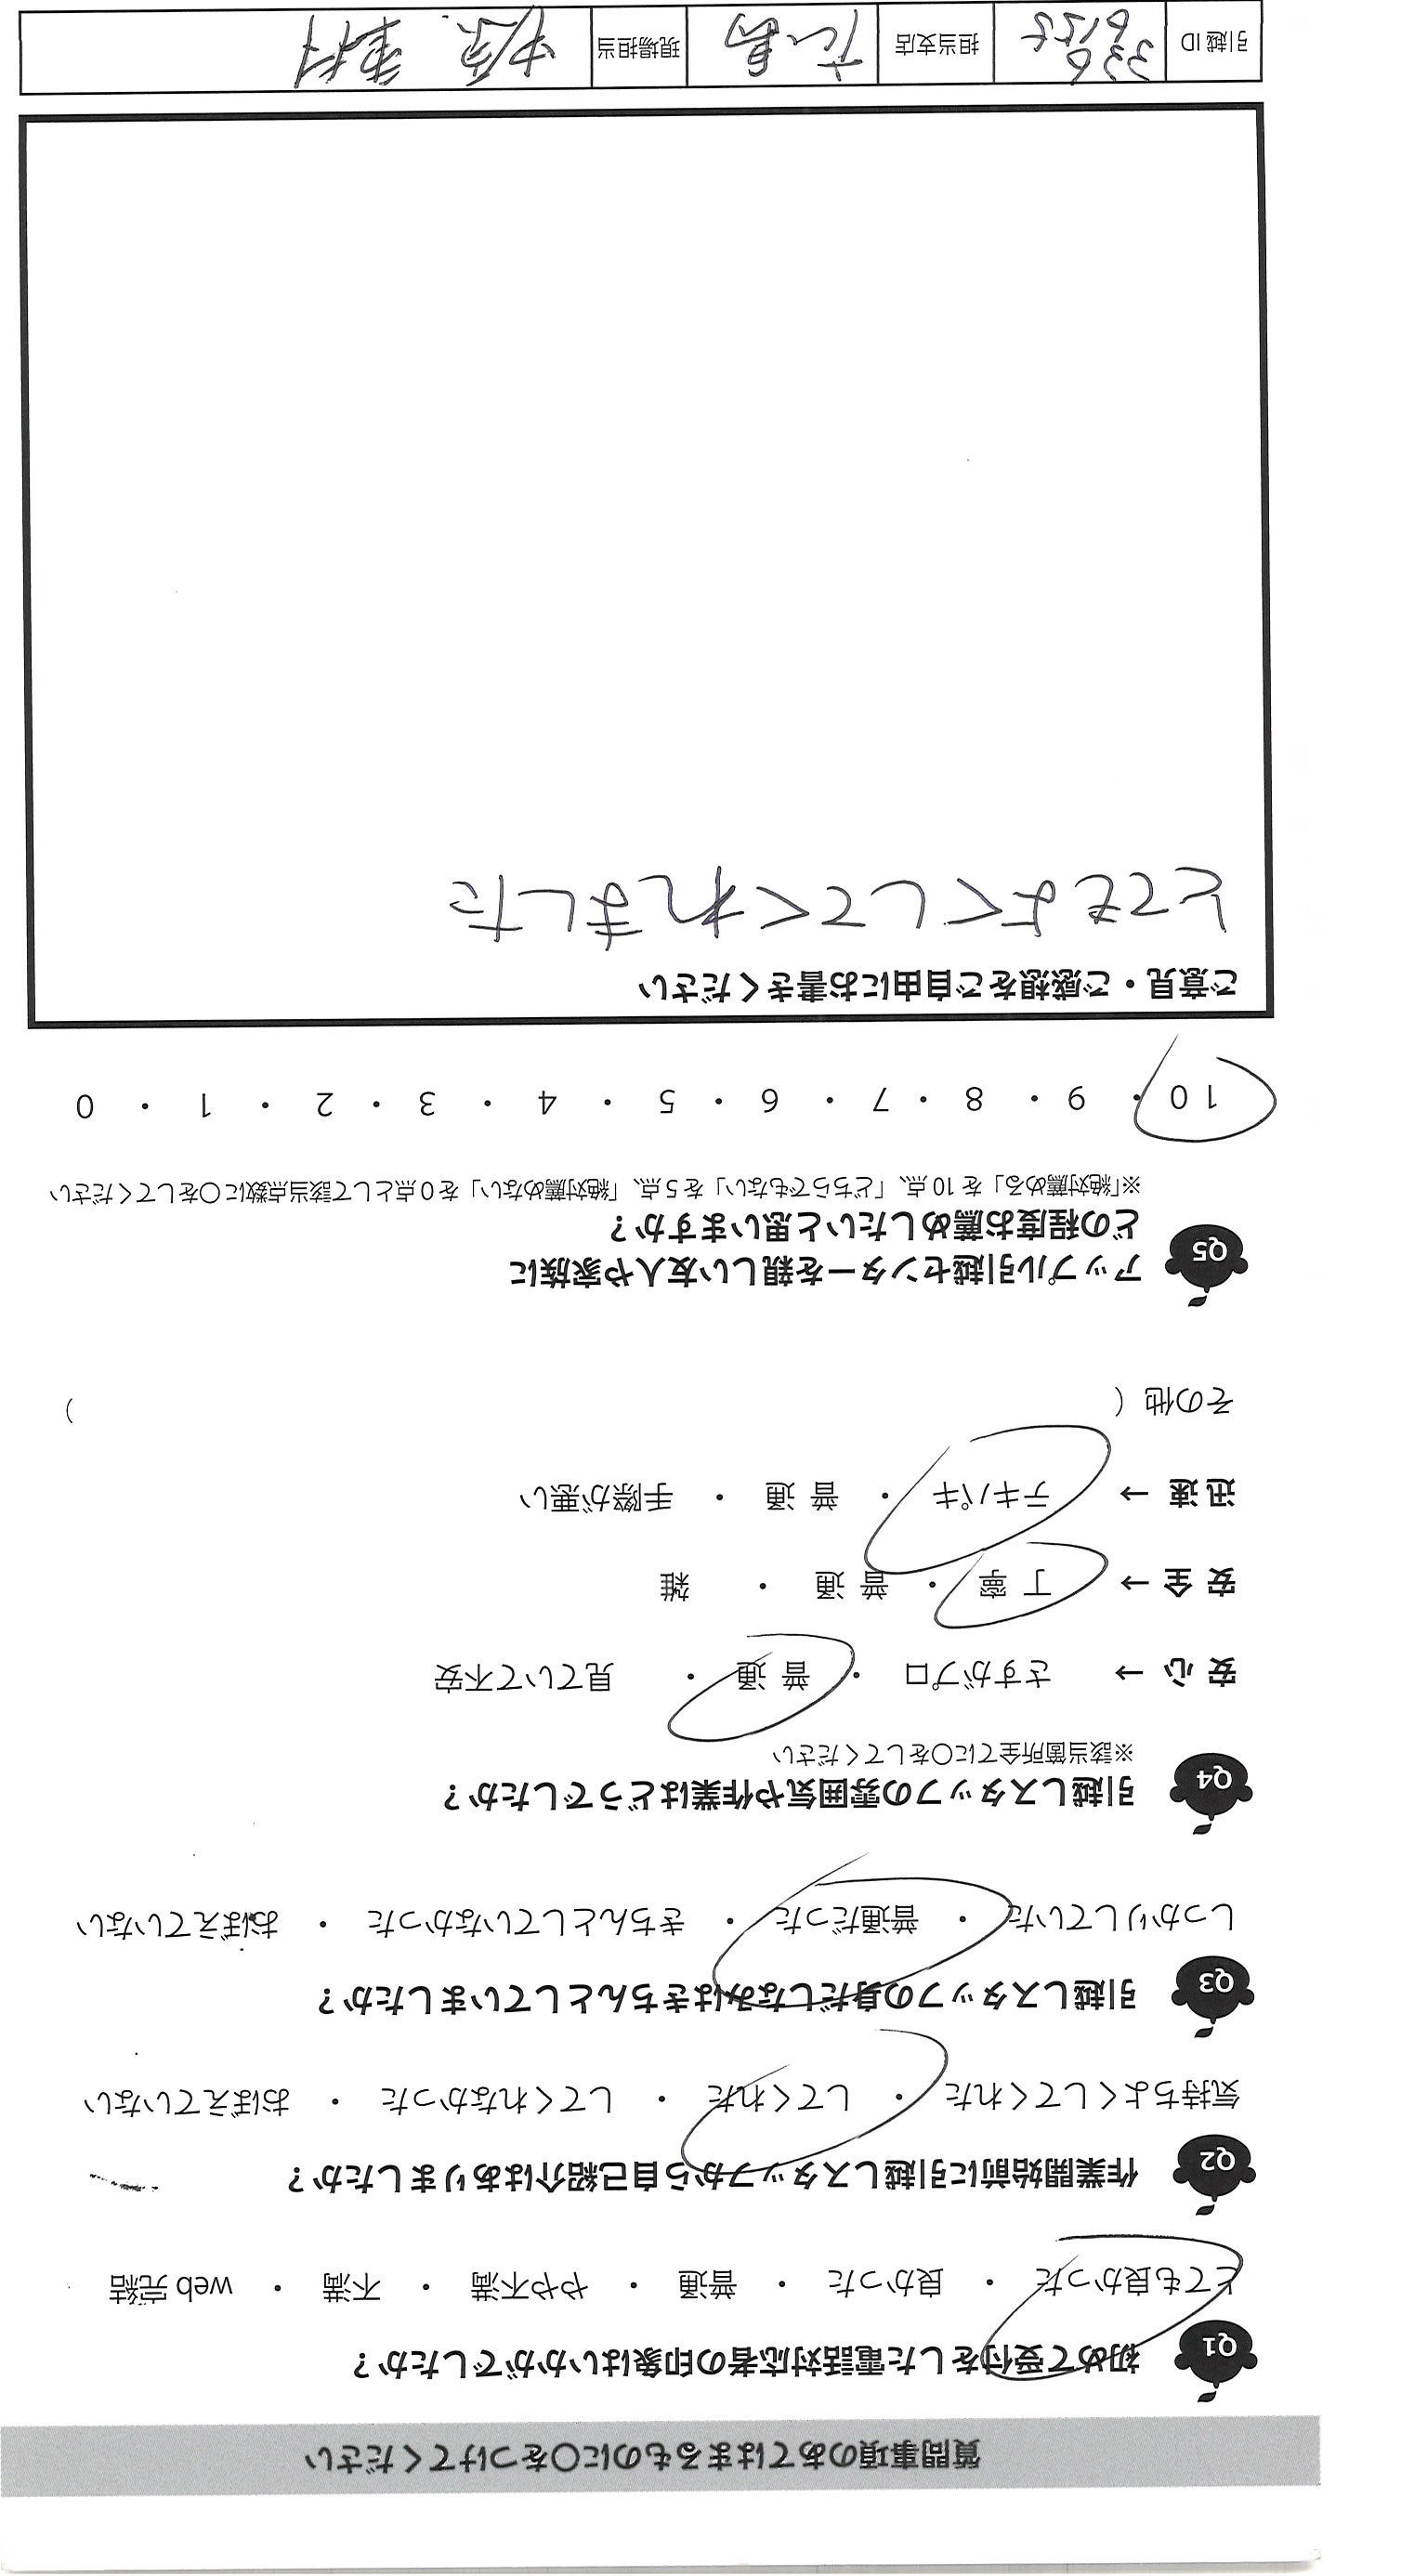 質問事項のあてはまるものに〇をつけてください
Q1 初めて受付をした電話対応者の印象はいかがでしたか？
とても良かった ・ 良かった ・ 普通 ・ やや不満 ・ 不満 ・ web 完結
Q2 作業開始前に引越しスタッフから自己紹介はありましたか？
気持ちよくしてくれた ・ してくれた ・ してくれなかった ・ おぼえていない
Q3 引越しスタッフの身だしなみはきちんとしていましたか？
しっかりしていた ・ 普通だった ・ きちんとしていなかった ・ おぼえていない
Q4 引越しスタッフの雰囲気や作業はどうでしたか？
※該当箇所全てに〇をしてください
安 心 → さすがプロ ・ 普 通 ・ 見ていて不安
安 全 → 丁 寧 ・ 普 通 ・ 雑
迅 速 → テキパキ ・ 普 通 ・ 手際が悪い
その他（ ）
Q5 アップル引越センターを親しい友人や家族に
どの程度お薦めしたいと思いますか？
※「絶対薦める」を 10 点、「どちらでもない」を 5 点、「絶対薦めない」を 0 点として該当点数に〇をしてください
10 ・ 9 ・ 8 ・ 7 ・ 6 ・ 5 ・ 4 ・ 3 ・ 2 ・ 1 ・ 0
ご意見・ご感想をご自由にお書きください
とてもよくしてくれました
引越 ID 担当支店 広島 現場担当